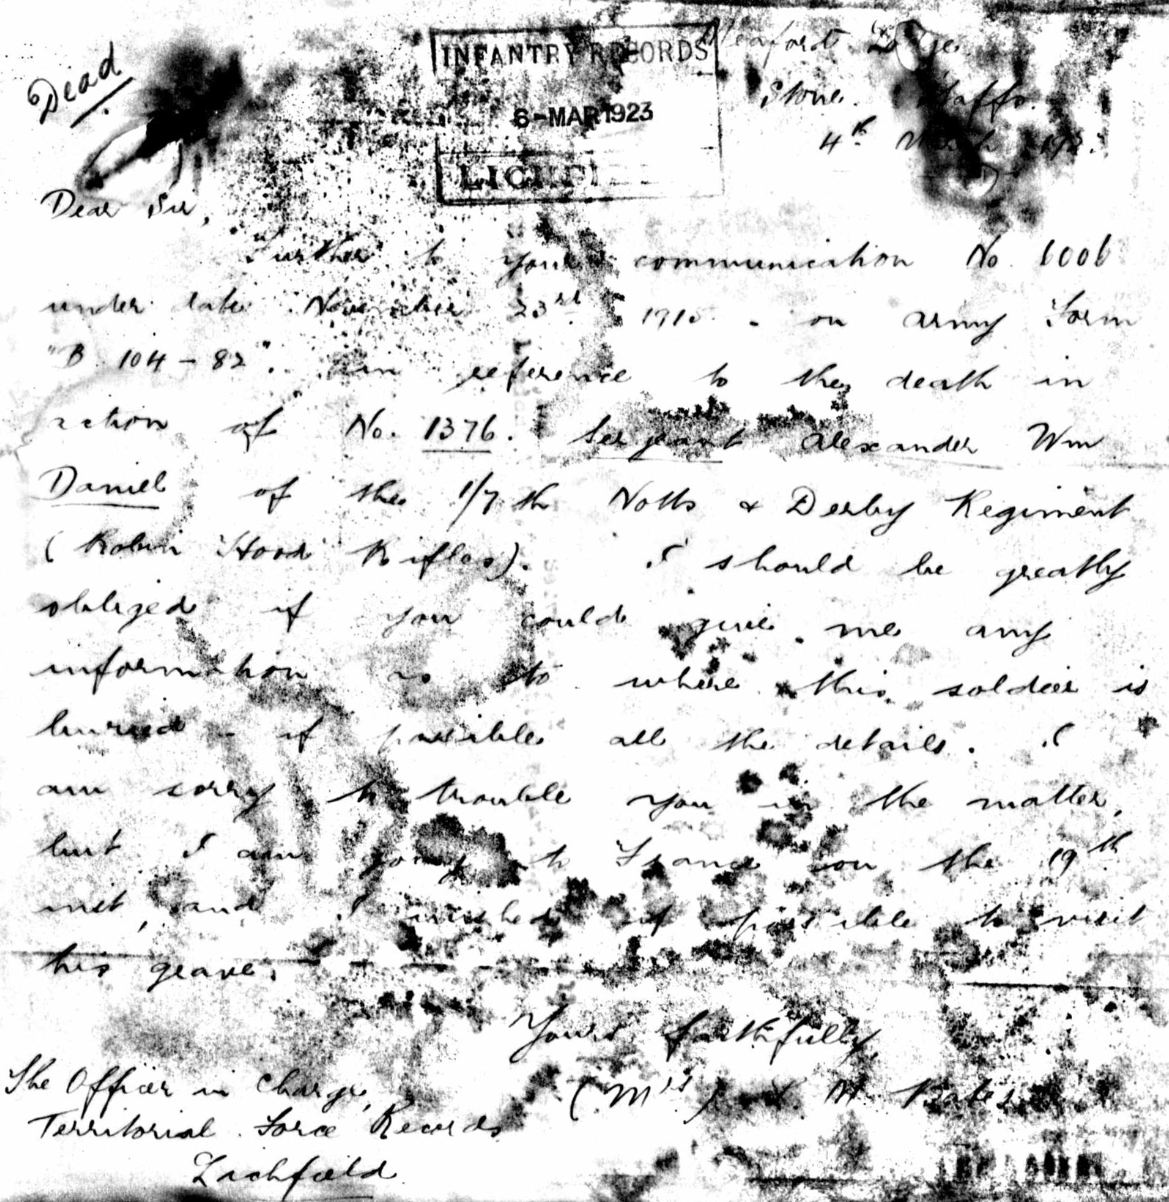 Dead
INFANTRY RECORDS
6-MAR 1923
LICHFI
Meaford Lodge
Stone. Staffs.
4th March 192
Dear Sir,
Further to your communication No 6006
under date November 23rd 1915. on army Form
"B. 104-82". in reference to the death in
action of No. 1376. Sergeant Alexander Wm
Daniel of the 1/7th Notts & Derby Regiment
(Robin Hood Rifles). I should be greatly
obliged if you could give me any
information as to where this soldier is
buried - if possible all the details. I
am sorry to trouble you in the matter,
but I am going to France on the 19th
inst, and I wished if possible to visit
his grave.
Yours faithfully,
(Mrs) L. M. Bates
The Officer in Charge,
Territorial Force Records
Lichfield.